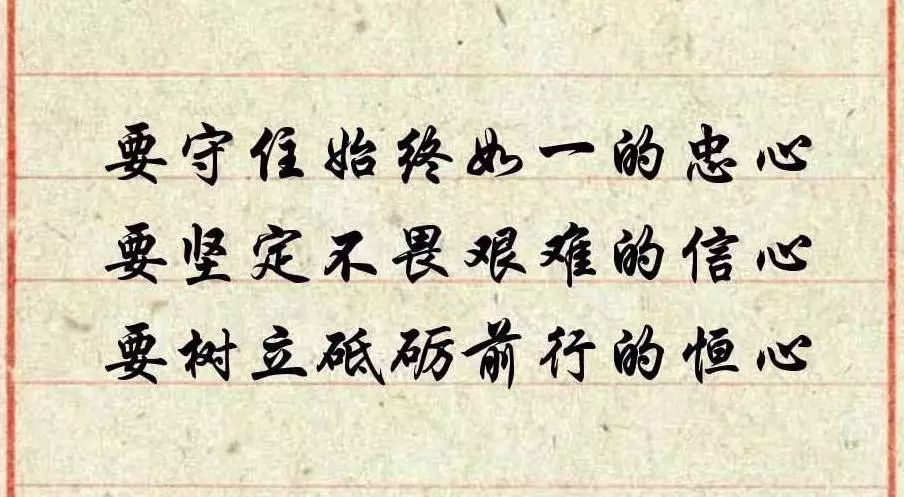 要守住始终如一的忠心
要坚定不畏艰难的信心
要树立砥砺前行的恒心